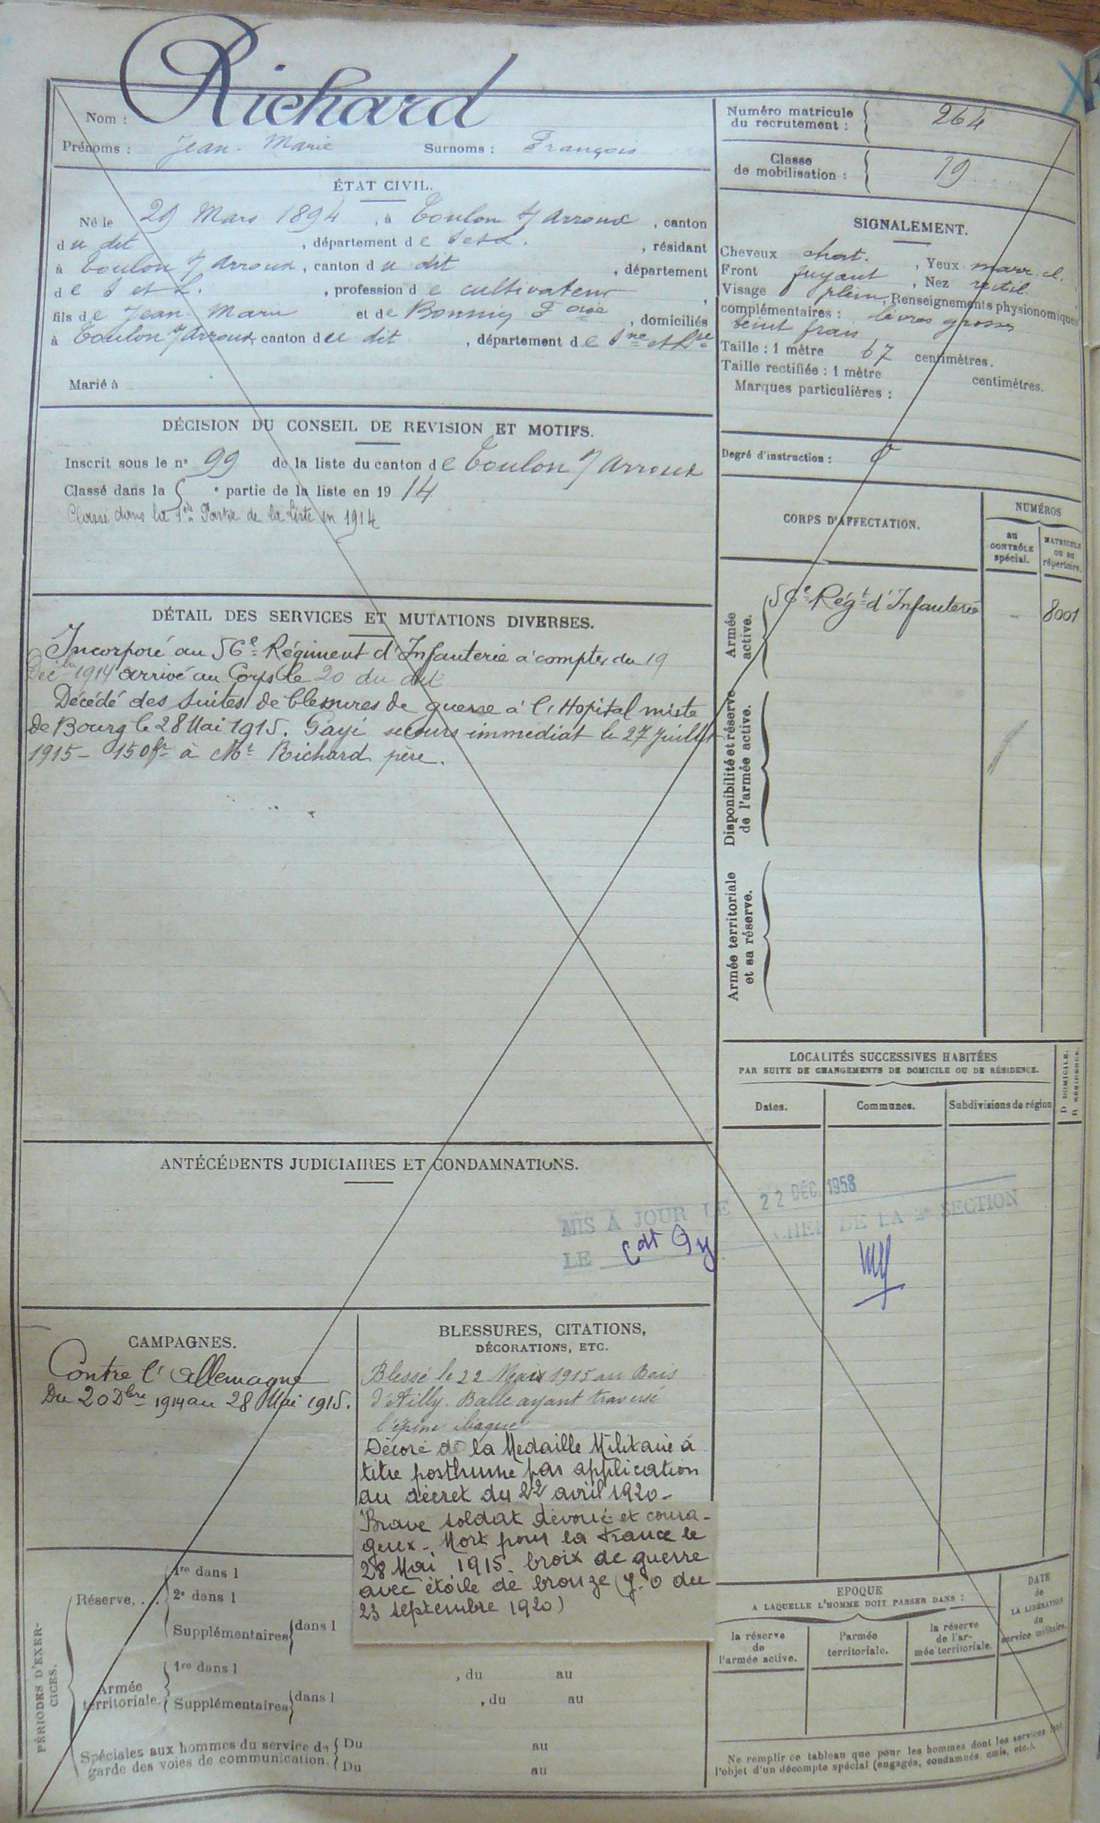 Nom : Richard
Prénoms : Jean-Marie Surnoms : François
Numéro matricule du recrutement : 264
Classe de mobilisation : 19
ÉTAT CIVIL.
Né le 29 Mars 1894, à Toulon s/ Arroux, canton
du dit, département de S et L., résidant
à Toulon s/ Arroux, canton du dit, département
de S et L., profession de cultivateur,
fils de Jean Marie et de Bonnin Fçoise, domiciliés
à Toulon s/ Arroux, canton du dit, département de Sne et Lre
Marié à
SIGNALEMENT.
Cheveux chat., Yeux marr. cl.
Front fuyant, Nez rectil.
Visage plein, Renseignements physionomiques
complémentaires : lèvres grosses
teint frais
Taille : 1 mètre 67 centimètres.
Taille rectifiée : 1 mètre centimètres.
Marques particulières :
Degré d'instruction :
DÉCISION DU CONSEIL DE REVISION ET MOTIFS.
Inscrit sous le n° 99 de la liste du canton de Toulon s/ Arroux
Classé dans la e partie de la liste en 1914
Classé dans la 1ère Partie de la liste en 1914
CORPS D'AFFECTATION.
NUMÉROS
au CONTRÔLE spécial.
MATRICULE ou au répertoire.
Armée active.
56e Régt d'Infanterie – 8001
Disponibilité et réserve de l'armée active.
Armée territoriale et sa réserve.
DÉTAIL DES SERVICES ET MUTATIONS DIVERSES.
Incorporé au 56e Régiment d'Infanterie à compter du 19
Décbre 1914 arrivé au Corps le 20 du dit
Décédé des suites de blessures de guerre à l'Hopital mixte
de Bourg le 28 Mai 1915. Payé secours immédiat le 27 Juillet
1915 – 150f à Mr Richard père.
LOCALITÉS SUCCESSIVES HABITÉES
PAR SUITE DE CHANGEMENTS DE DOMICILE OU DE RÉSIDENCE.
Dates. Communes. Subdivisions de région
D DOMICILE.
R RÉSIDENCE.
ANTÉCÉDENTS JUDICIAIRES ET CONDAMNATIONS.
MIS A JOUR LE 22 DÉC. 1958
LE CHEF DE LA 2e SECTION
CAMPAGNES.
Contre l'Allemagne
Du 20 Dbre 1914 au 28 Mai 1915.
BLESSURES, CITATIONS,
DÉCORATIONS, ETC.
Blessé le 22 Mai 1915 au Bois
d'Ailly. Balle ayant traversé
l'épine iliaque
Décoré de la Medaille Militaire à
titre posthume par application
du décret du 22 avril 1920 –
Brave soldat dévoué et coura-
geux – Mort pour la France le
28 Mai 1915. Croix de guerre
avec étoile de bronze (J.O du
23 septembre 1920)
PÉRIODES D'EXERCICES.
Réserve....
1re dans l
2e dans l
Supplémentaires dans l
Armée territoriale.
1re dans l , du au
Supplémentaires dans l , du au
Spéciales aux hommes du service de garde des voies de communication.
Du au
Du au
EPOQUE
A LAQUELLE L'HOMME DOIT PASSER DANS :
la réserve de l'armée active.
l'armée territoriale.
la réserve de l'armée territoriale.
DATE de LA LIBÉRATION du service militaire.
Ne remplir ce tableau que pour les hommes dont les services font
l'objet d'un décompte spécial (engagés, condamnés, omis, etc.).